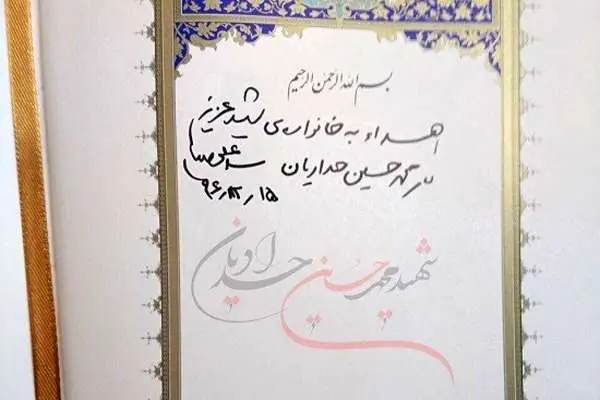 بسم الله الرحمن الرحیم
اهداء به خانواده‌ی شهید عزیز
محمد حسین حدادیان سید علی
۹۶٫۱۲٫۱۵
شهید محمد حسین حدادیان